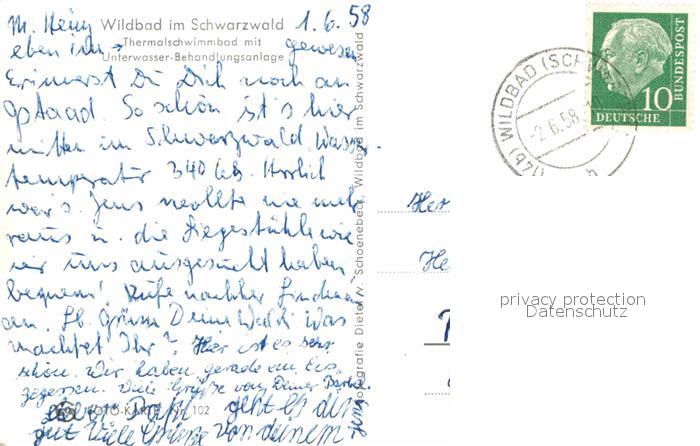 M. Heinz Wildbad im Schwarzwald 1.6.58
eben im → Thermalschwimmbad mit gewesen
Unterwasser-Behandlungsanlage
Erinnerst Du Dich noch an
Gstaad. So schön ist's hier
mitten im Schwarzwald. Wasser-
temperatur 34° Cels. Herrlich
war's. Jens wollte nie mehr
raus u. die Liegestühle wie
wir uns ausgesucht haben
bequem! Rufe nachher
an. Lb. Grüsse Deine Waldi Was
machtet Ihr? Hier ist es sehr
schön. Wir haben gerade ein Eis
gegessen. Viele Grüße von Deiner
FOTO-KARTE Nr. 102
Lieber Papi geht es dir
gut Viele Grüße von deinem Jens
Fotografie Dieter N. Schoenebeck, Wildbad im Schwarzwald
(14b) WILDBAD (SCHW
-2.6.58
10
DEUTSCHE
BUNDESPOST
Her
He
privacy protection
Datenschutz